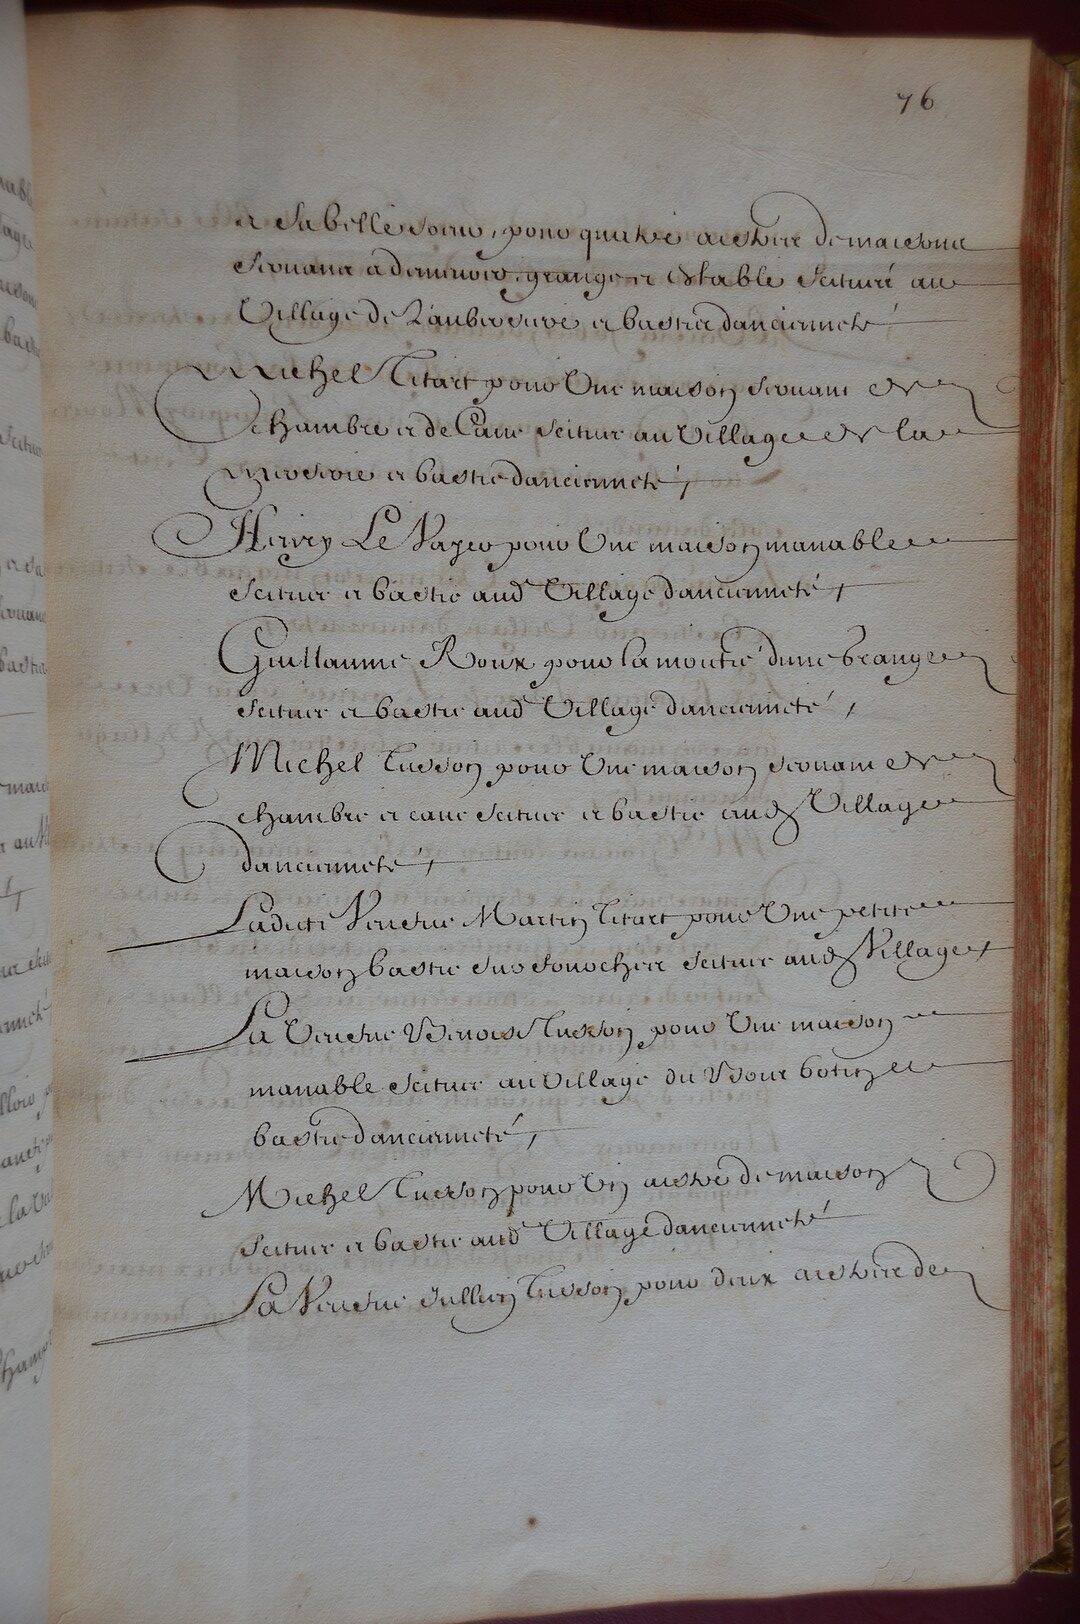 76
et sa belle soeur, pour quatre aistre de maisons
servant a demeure, grange et estable scitué au
Village de et bastie dancienneté
Michel Titart pour Une maison servant de
chambre et de Cave scitue au Village de la
et bastie dancienneté,
Hervy Le Vayer pour Une maison manable
scitue et bastie aud Village dancienneté,
Guillaume Roux pour la moitié dune Grange
scitue et bastie aud Village dancienneté,
Michel Tusson pour Une maison servant de
chambre et cave scitue et bastie aud Village
dancienneté,
Ladicte Veufve Martin Titart pour Une petite
maison bastie sur scitue aud Village,
La Veufve Tusson pour Une maison
manable scitue au Village du
bastie dancienneté,
Michel Tusson pour Un aistre de maison
scitue et bastie aud Village dancienneté
La Veufve Jullien Tusson pour deux aistre de